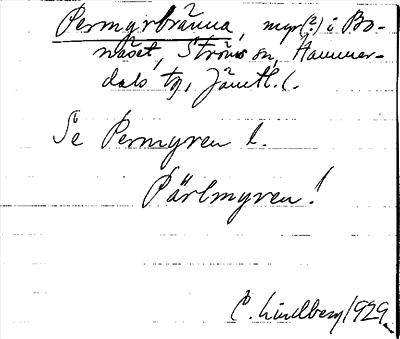 Permyrbränna, myr(?) i Bo-
näset, Ströms sn, Hammer-
dals tg, Jämtl. l.
Se Permyren l.
Pärlmyren!
C. Lindberg 1929.